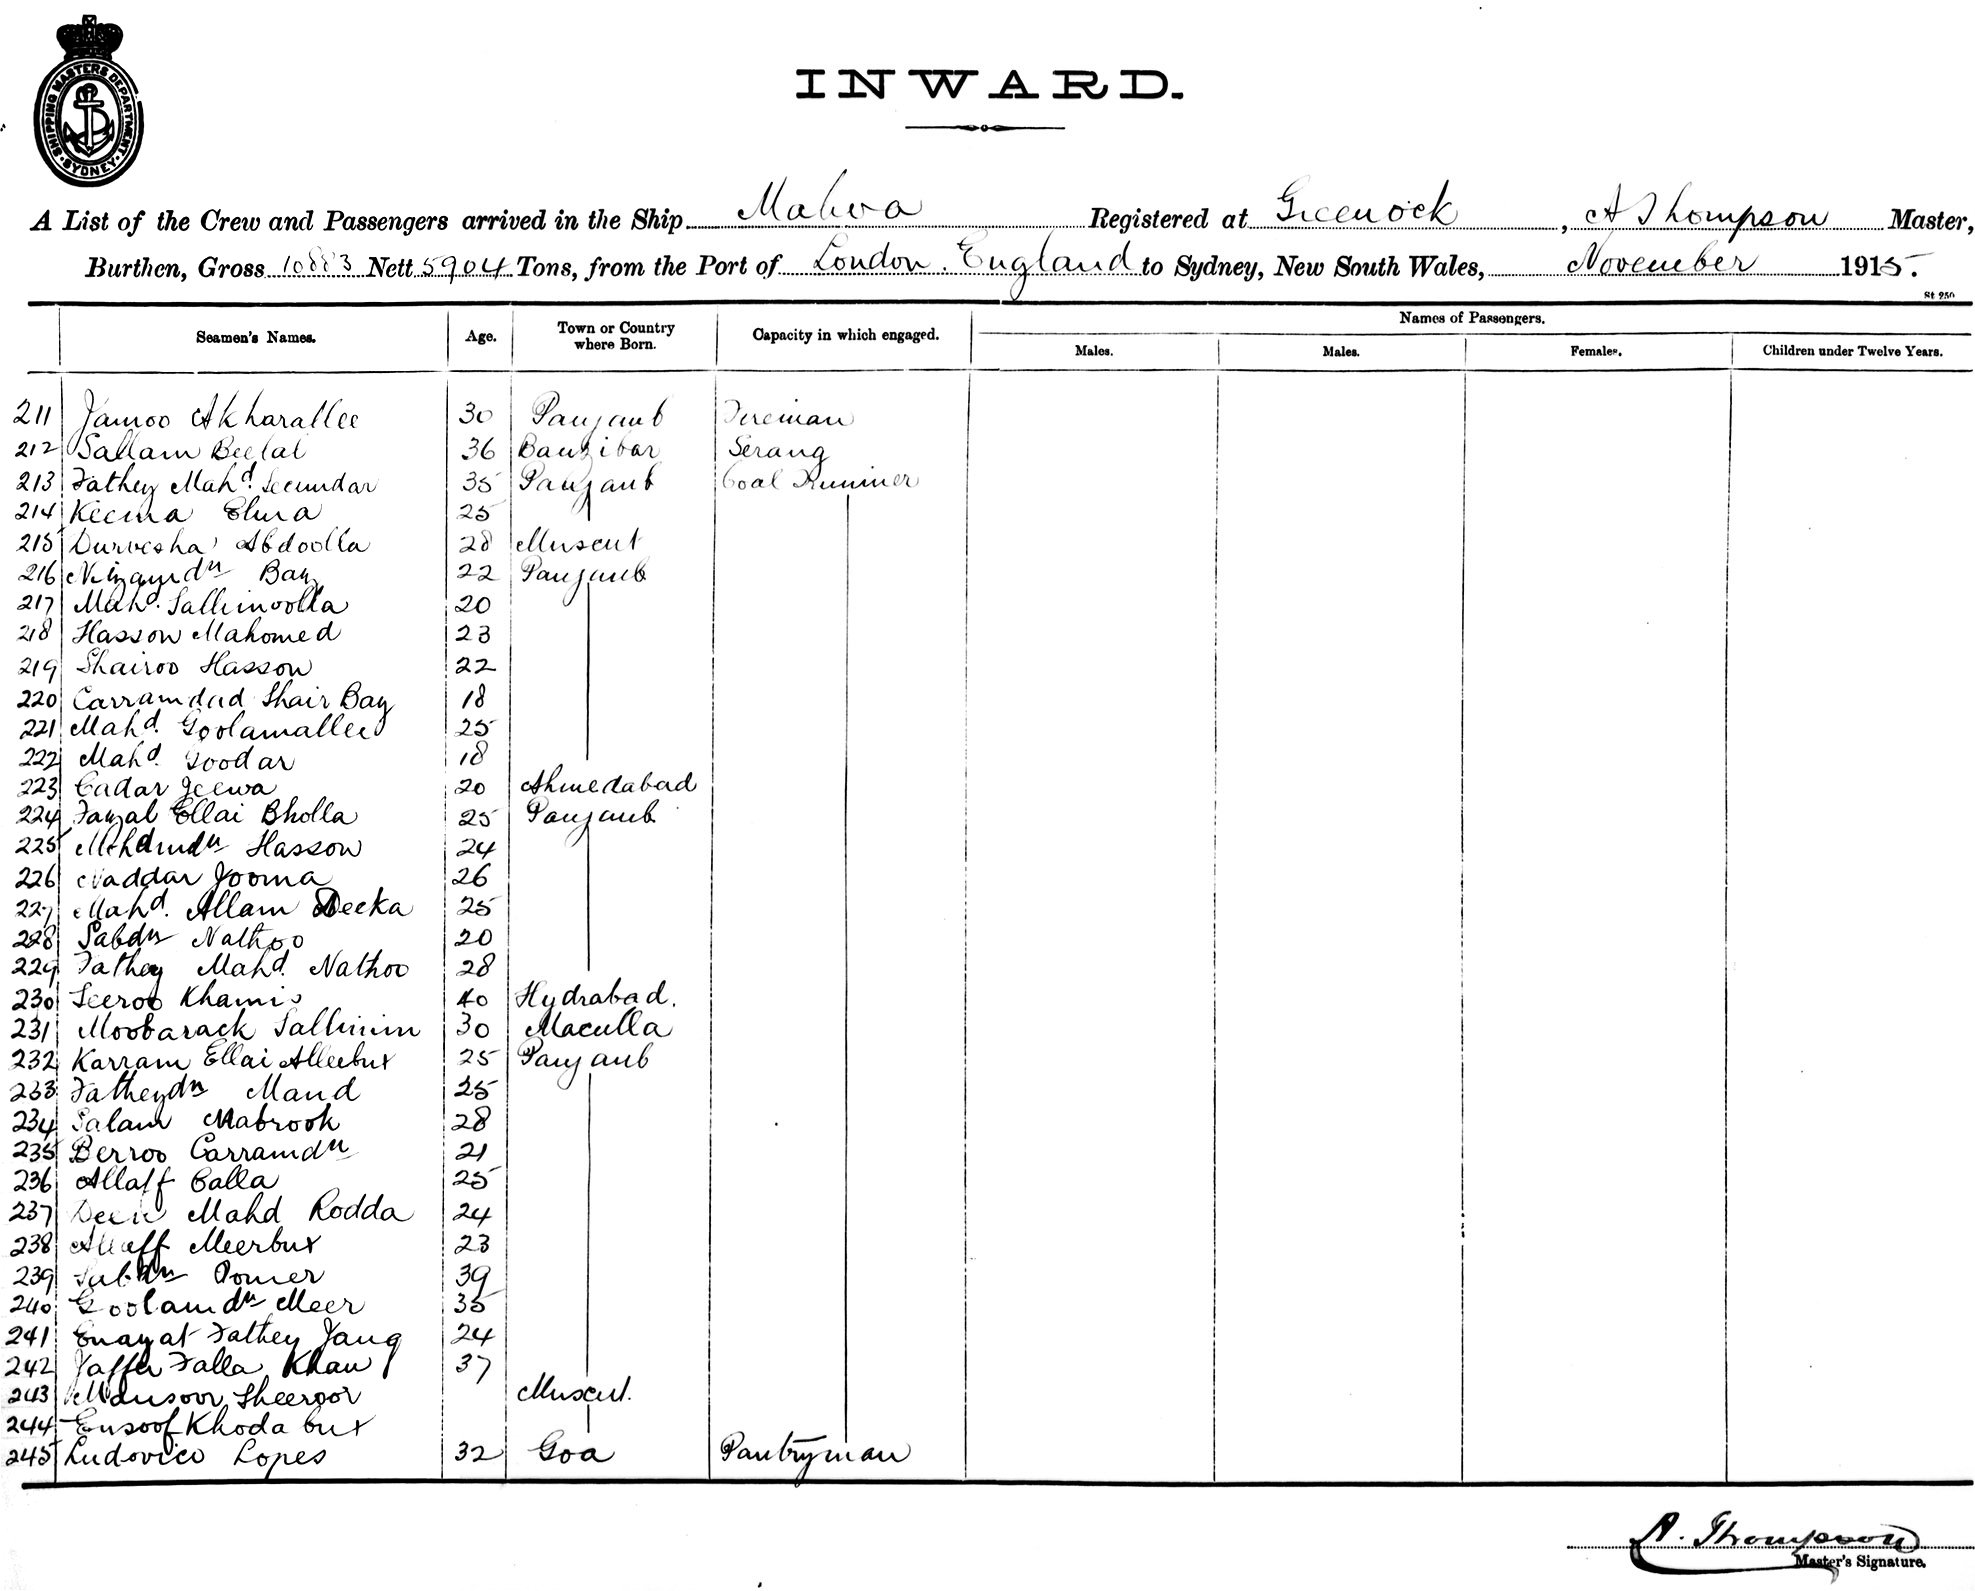 SHIPPING MASTERS DEPARTMENT
SYDNEY
INWARD.
A List of the Crew and Passengers arrived in the Ship Malwa Registered at Greenock, A Thompson Master,
Burthen, Gross 10883 Nett 5904 Tons, from the Port of London. England to Sydney, New South Wales, November 1915.
St 250
Seamen's Names. Age. Town or Country where Born. Capacity in which engaged. Names of Passengers.
Males. Males. Females. Children under Twelve Years.
211 Jamoo Akharallee 30 Panjaub Fireman
212 Sallam Beelal 36 Banzibar Serang
213 Fathey Mahd. Secundar 35 Panjaub Coal Runner
214 Keema Elma 25
215 Durvesha Abdoolla 28 Muscut
216 Nizamdn Bay 22 Panjaub
217 Mahd. Sallimoolla 20
218 Hasson Mahomed 23
219 Shairoo Hasson 22
220 Carramdad Shair Bay 18
221 Mahd. Goolamallee 25
222 Mahd. Goodar 18
223 Cadar Jeewa 20 Ahmedabad
224 Fazal Ellai Bholla 25 Panjaub
225 Mehdn Hasson 24
226 Naddar Jooma 26
227 Mahd. Allam Deeka 25
228 Sabdn Nathoo 20
229 Fathey Mahd. Nathoo 28
230 Seeroo Khamis 40 Hydrabad.
231 Moobarack Sallimim 30 Maculla
232 Karram Ellai Alleebux 25 Panjaub
233 Fatheydn Mand 25
234 Salam Mabrook 28
235 Berroo Carramdn 21
236 Allaff Calla 25
237 Deen Mahd Rodda 24
238 Allaff Meerbux 23
239 Sabdn Pomer 39
240 Goolamdn Meer 35
241 Enayat Fathey Jang 24
242 Jaffer Falla Khan 37
243 Mansoor Sheeroor Muscut.
244 Eusoof Khoda bux
245 Ludovico Lopes 32 Goa Pantryman
A. Thompson
Master's Signature.